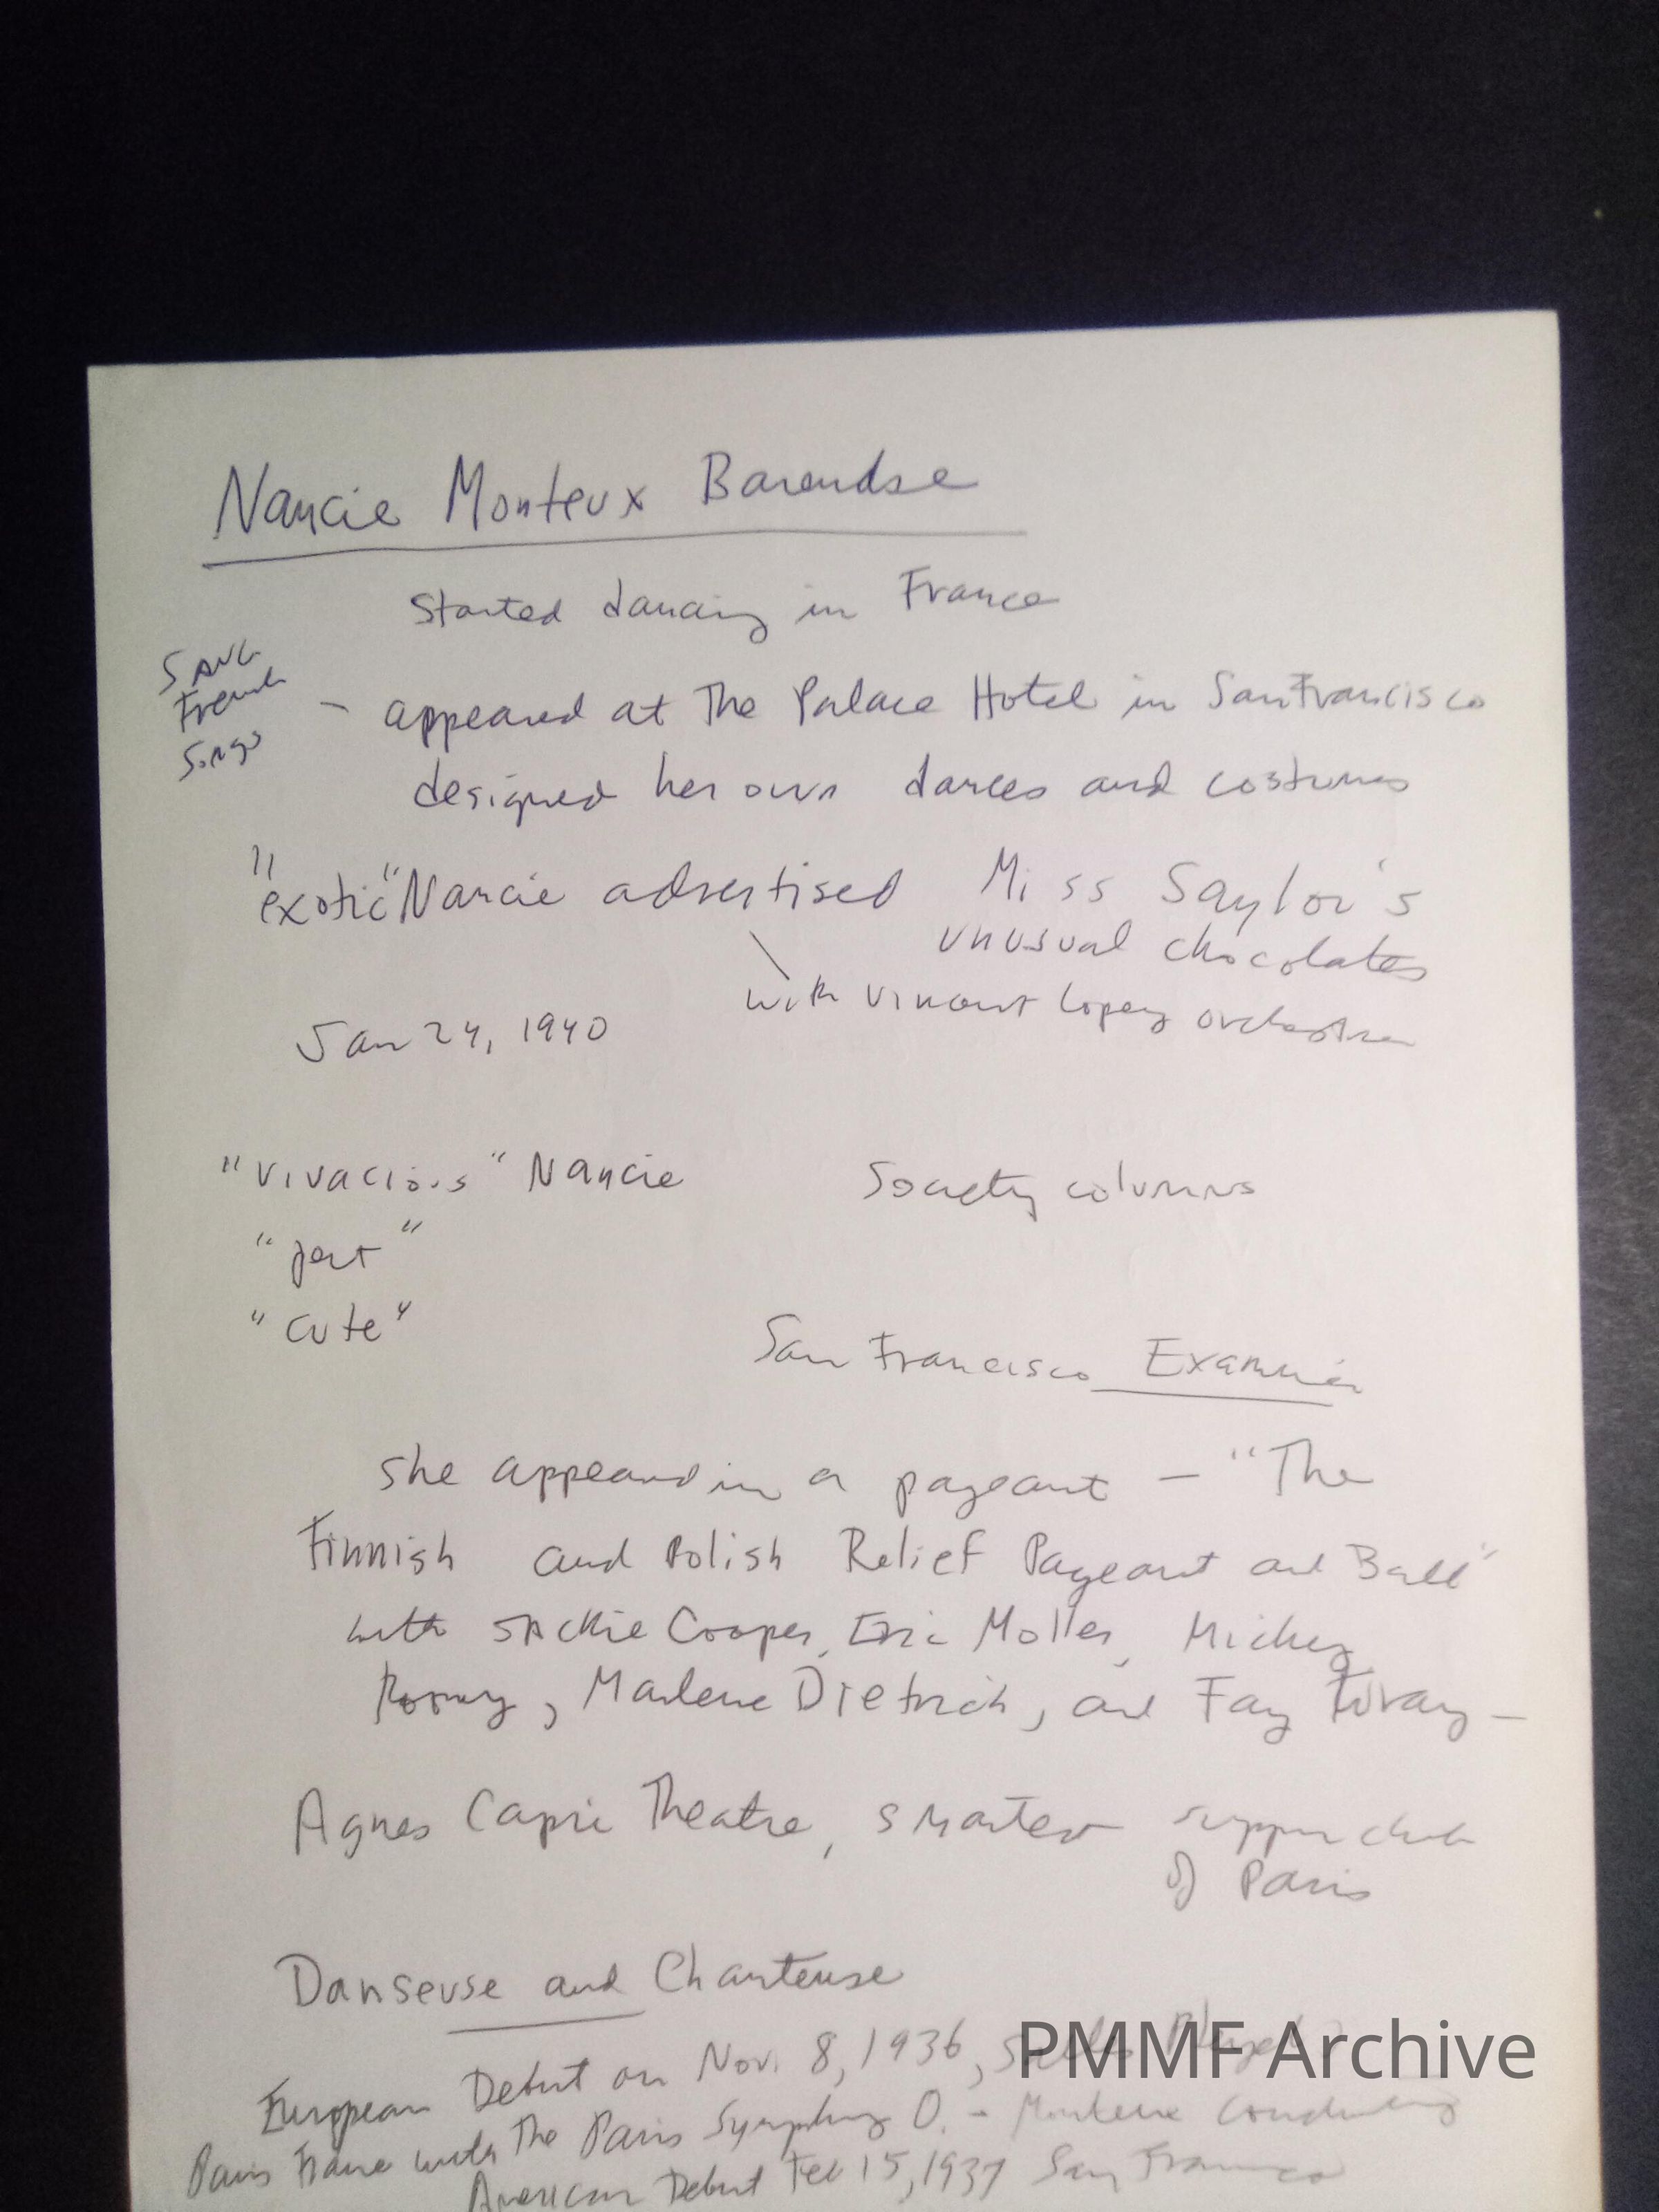 Nancie Monteux Barendse
Started dancing in France
SANG
French
Songs
- appeared at The Palace Hotel in San Francisco
designed her own dances and costumes
"exotic" Nancie advertised Miss Saylor's
unusual chocolates
with Vincent Lopez orchestra
Jan 24, 1940
"vivacious" Nancie Society columns
"pert"
"cute"
San Francisco Examiner
she appeared in a pageant - "The
Finnish and Polish Relief Pageant and Ball"
with Jackie Cooper, Eric Moller, Mickey
Rooney, Marlene Dietrich, and Fay Wray -
Agnes Capri Theatre, smartest supper club
of Paris
Danseuse and Chanteuse
European Debut on Nov. 8, 1936, Salle Pleyel
Paris France with The Paris Symphony O. - Monteux Conducting
American Debut Feb 15, 1937 San Francisco
PMMF Archive